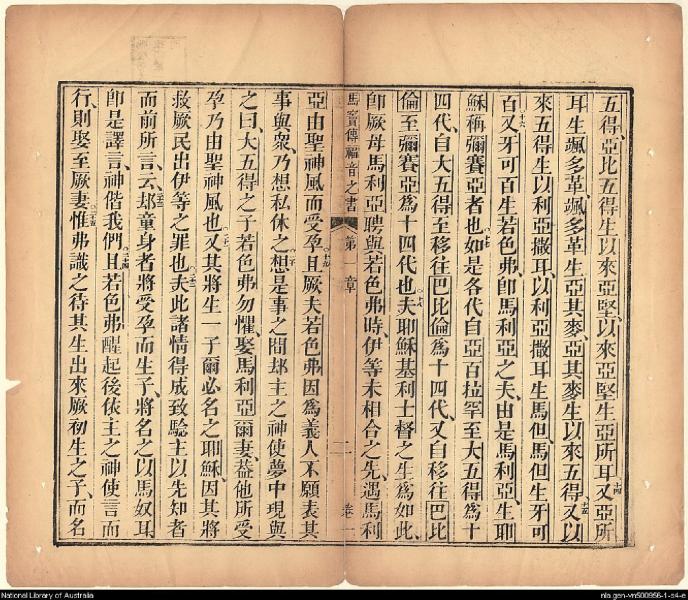 五得亞比五得生以來亞堅以來亞堅生亞所耳又亞所
耳生颯多革颯多革生亞其麥亞其麥生以來五得又以
來五得生以利亞撒耳以利亞撒耳生馬但馬但生牙可
百又牙可百生若色弗卽馬利亞之夫由是馬利亞生耶
穌稱彌賽亞者也如是各代自亞百拉罕至大五得為十
四代自大五得至移往巴比倫為十四代又自移往巴比
倫至彌賽亞為十四代也夫耶穌基利士督之生為如此
卽厥母馬利亞聘與若色弗時伊等未相合之先遇馬利
馬竇傳福音之書 第一章 二 卷一
亞由聖神風而受孕且厥夫若色弗因為義人不願表其
事與衆乃想私休之想是事之間却主之神使夢中現與
之曰大五得之子若色弗勿懼娶馬利亞爾妻葢他所受
孕乃由聖神風也又其將生一子爾必名之耶穌因其將
救厥民出伊等之罪也夫此諸情得成致驗主以先知者
而前所言云却童身者將受孕而生子將名之以馬奴耳
卽是譯言神偕我們且若色弗醒起後依主之神使言而
行則娶至厥妻惟弗識之待其生出來厥初生之子而名
National Library of Australia
nla.gen-vn500956-1-s4-e